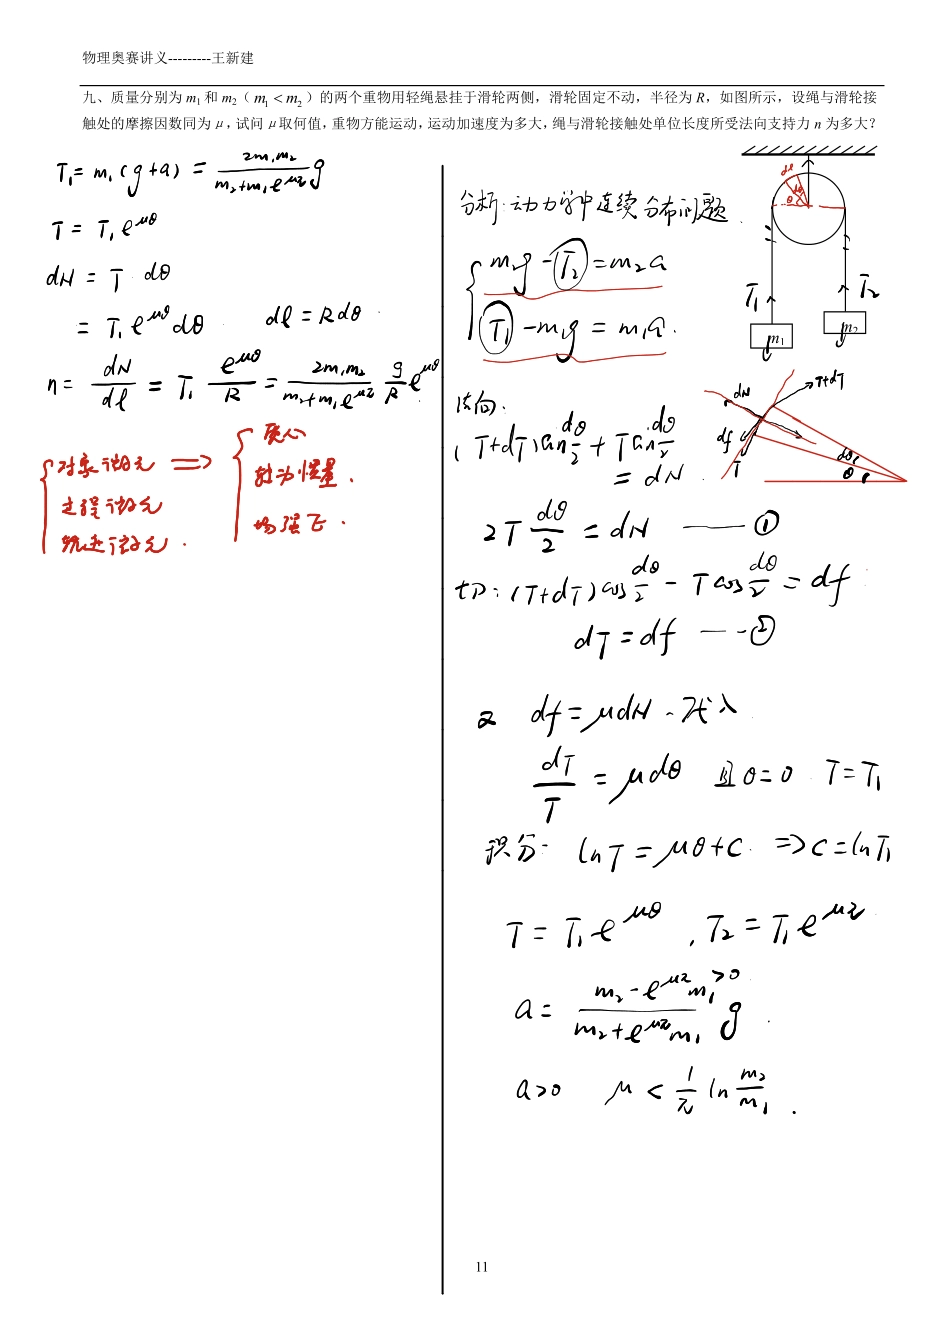 物理奥赛讲义---------王新建
九、质量分别为 m₁ 和 m₂（ m₁ < m₂ ）的两个重物用轻绳悬挂于滑轮两侧，滑轮固定不动，半径为 R，如图所示，设绳与滑轮接
触处的摩擦因数同为 μ，试问 μ 取何值，重物方能运动，运动加速度为多大，绳与滑轮接触处单位长度所受法向支持力 n 为多大？
T₁ = m₁(g+a) = 2m₁m₂/(m₂+m₁e^{μπ}) g
T = T₁e^{μθ}
dN = T dθ
= T₁e^{μθ}dθ dl = Rdθ
n = dN/dl = T₁ e^{μθ}/R = 2m₁m₂/(m₂+m₁e^{μπ}) g/R e^{μθ}
对象微元 => 质心
转动惯量.
过程微元
场强E.
dl
dθ
θ
T₁
T₂
m₁
m₂
分析:动力学中连续分布问题.
m₂g - T₂ = m₂a
T₁ - m₁g = m₁a.
dN
T+dT
df
T
dθ
θ
法向:
(T+dT)sin dθ/2 + T sin dθ/2
= dN
2T dθ/2 = dN —— ①
切: (T+dT)cos dθ/2 - T cos dθ/2 = df
dT = df —— ②
又 df = μdN 代入
dT/T = μdθ 且θ=0 T=T₁
积分: lnT = μθ+C => C = lnT₁
T = T₁e^{μθ}, T₂ = T₁e^{μπ}
a = (m₂ - e^{μπ}m₁)/(m₂ + e^{μπ}m₁) g >0
a>0 μ < 1/π ln m₂/m₁.
11